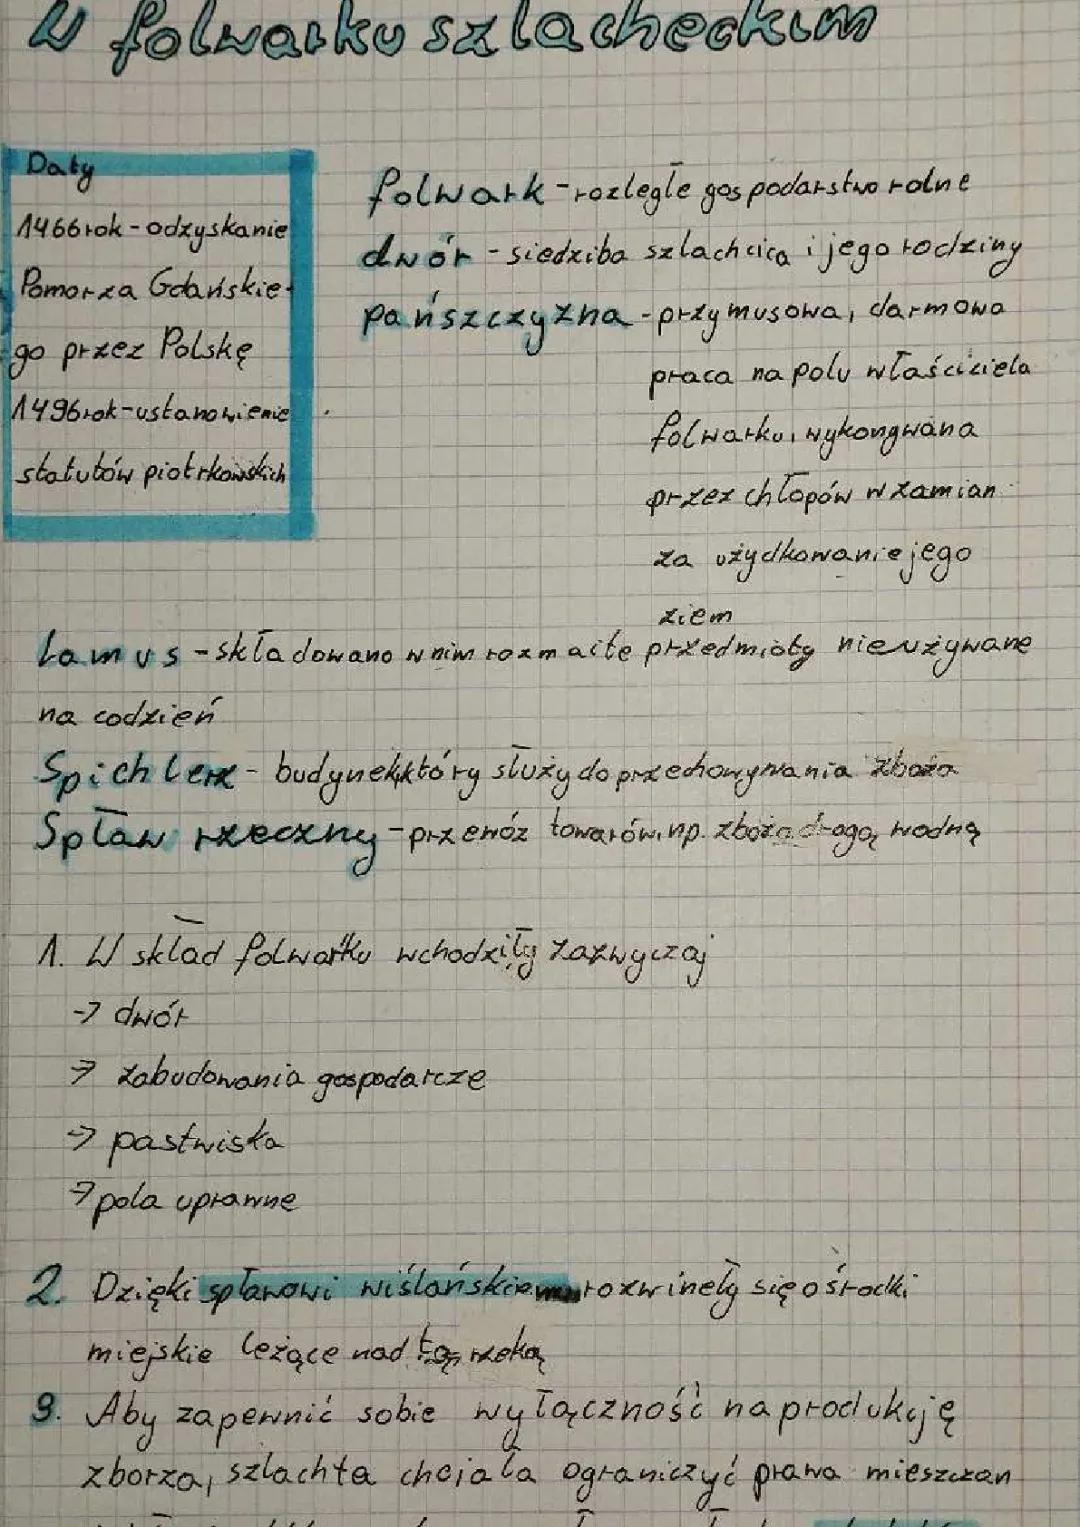 W folwarku szlacheckim
Daty
1466 rok - odzyskanie
Pomorza Gdańskie-
go przez Polskę
1496 rok - ustanowienie
statutów piotrkowskich
folwark - rozległe gospodarstwo rolne
dwór - siedziba szlachcica i jego rodziny
pańszczyzna - przymusowa, darmowa
praca na polu właściciela
folwarku, wykonywana
przez chłopów w zamian
za użydkowanie jego
ziem
Lamus - składowano w nim rozmaite przedmioty nieużywane
na codzień
Spichlerz - budynek, który służy do przechowywania zboża
Spław rzeczny - przewóz towarów, np. zboża drogą wodną
1. W skład folwarku wchodziły zazwyczaj
→ dwór
→ zabudowania gospodarcze
→ pastwiska
→ pola uprawne
2. Dzięki spławowi wiślańskiemu rozwineły się ośrodki
miejskie leżące nad tą rzeką
3. Aby zapewnić sobie wyłączność na produkcję
zborza, szlachta chciała ograniczyć prawa mieszczan